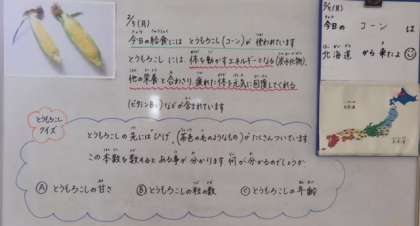 2/5(月)
今日の給食には とうもろこし(コーン)が 使われています
とうもろこし には、体を動かすエネルギーとなる(炭水化物)、
他の栄養と合わさり、疲れた体を元気に回復してくれる
(ビタミンB₁)などが含まれています
とうもろこし
クイズ
とうもろこしの 先には ひげ (茶色の毛のようなもの)が たくさんついています
この 本数を数えると ある事が 分かります 何が 分かるのでしょうか
Ⓐ とうもろこしの 甘さ Ⓑ とうもろこしの 粒の数 Ⓒ とうもろこしの 年齢
2/5(月)
今日の コーン は
北海道 から 来たよ